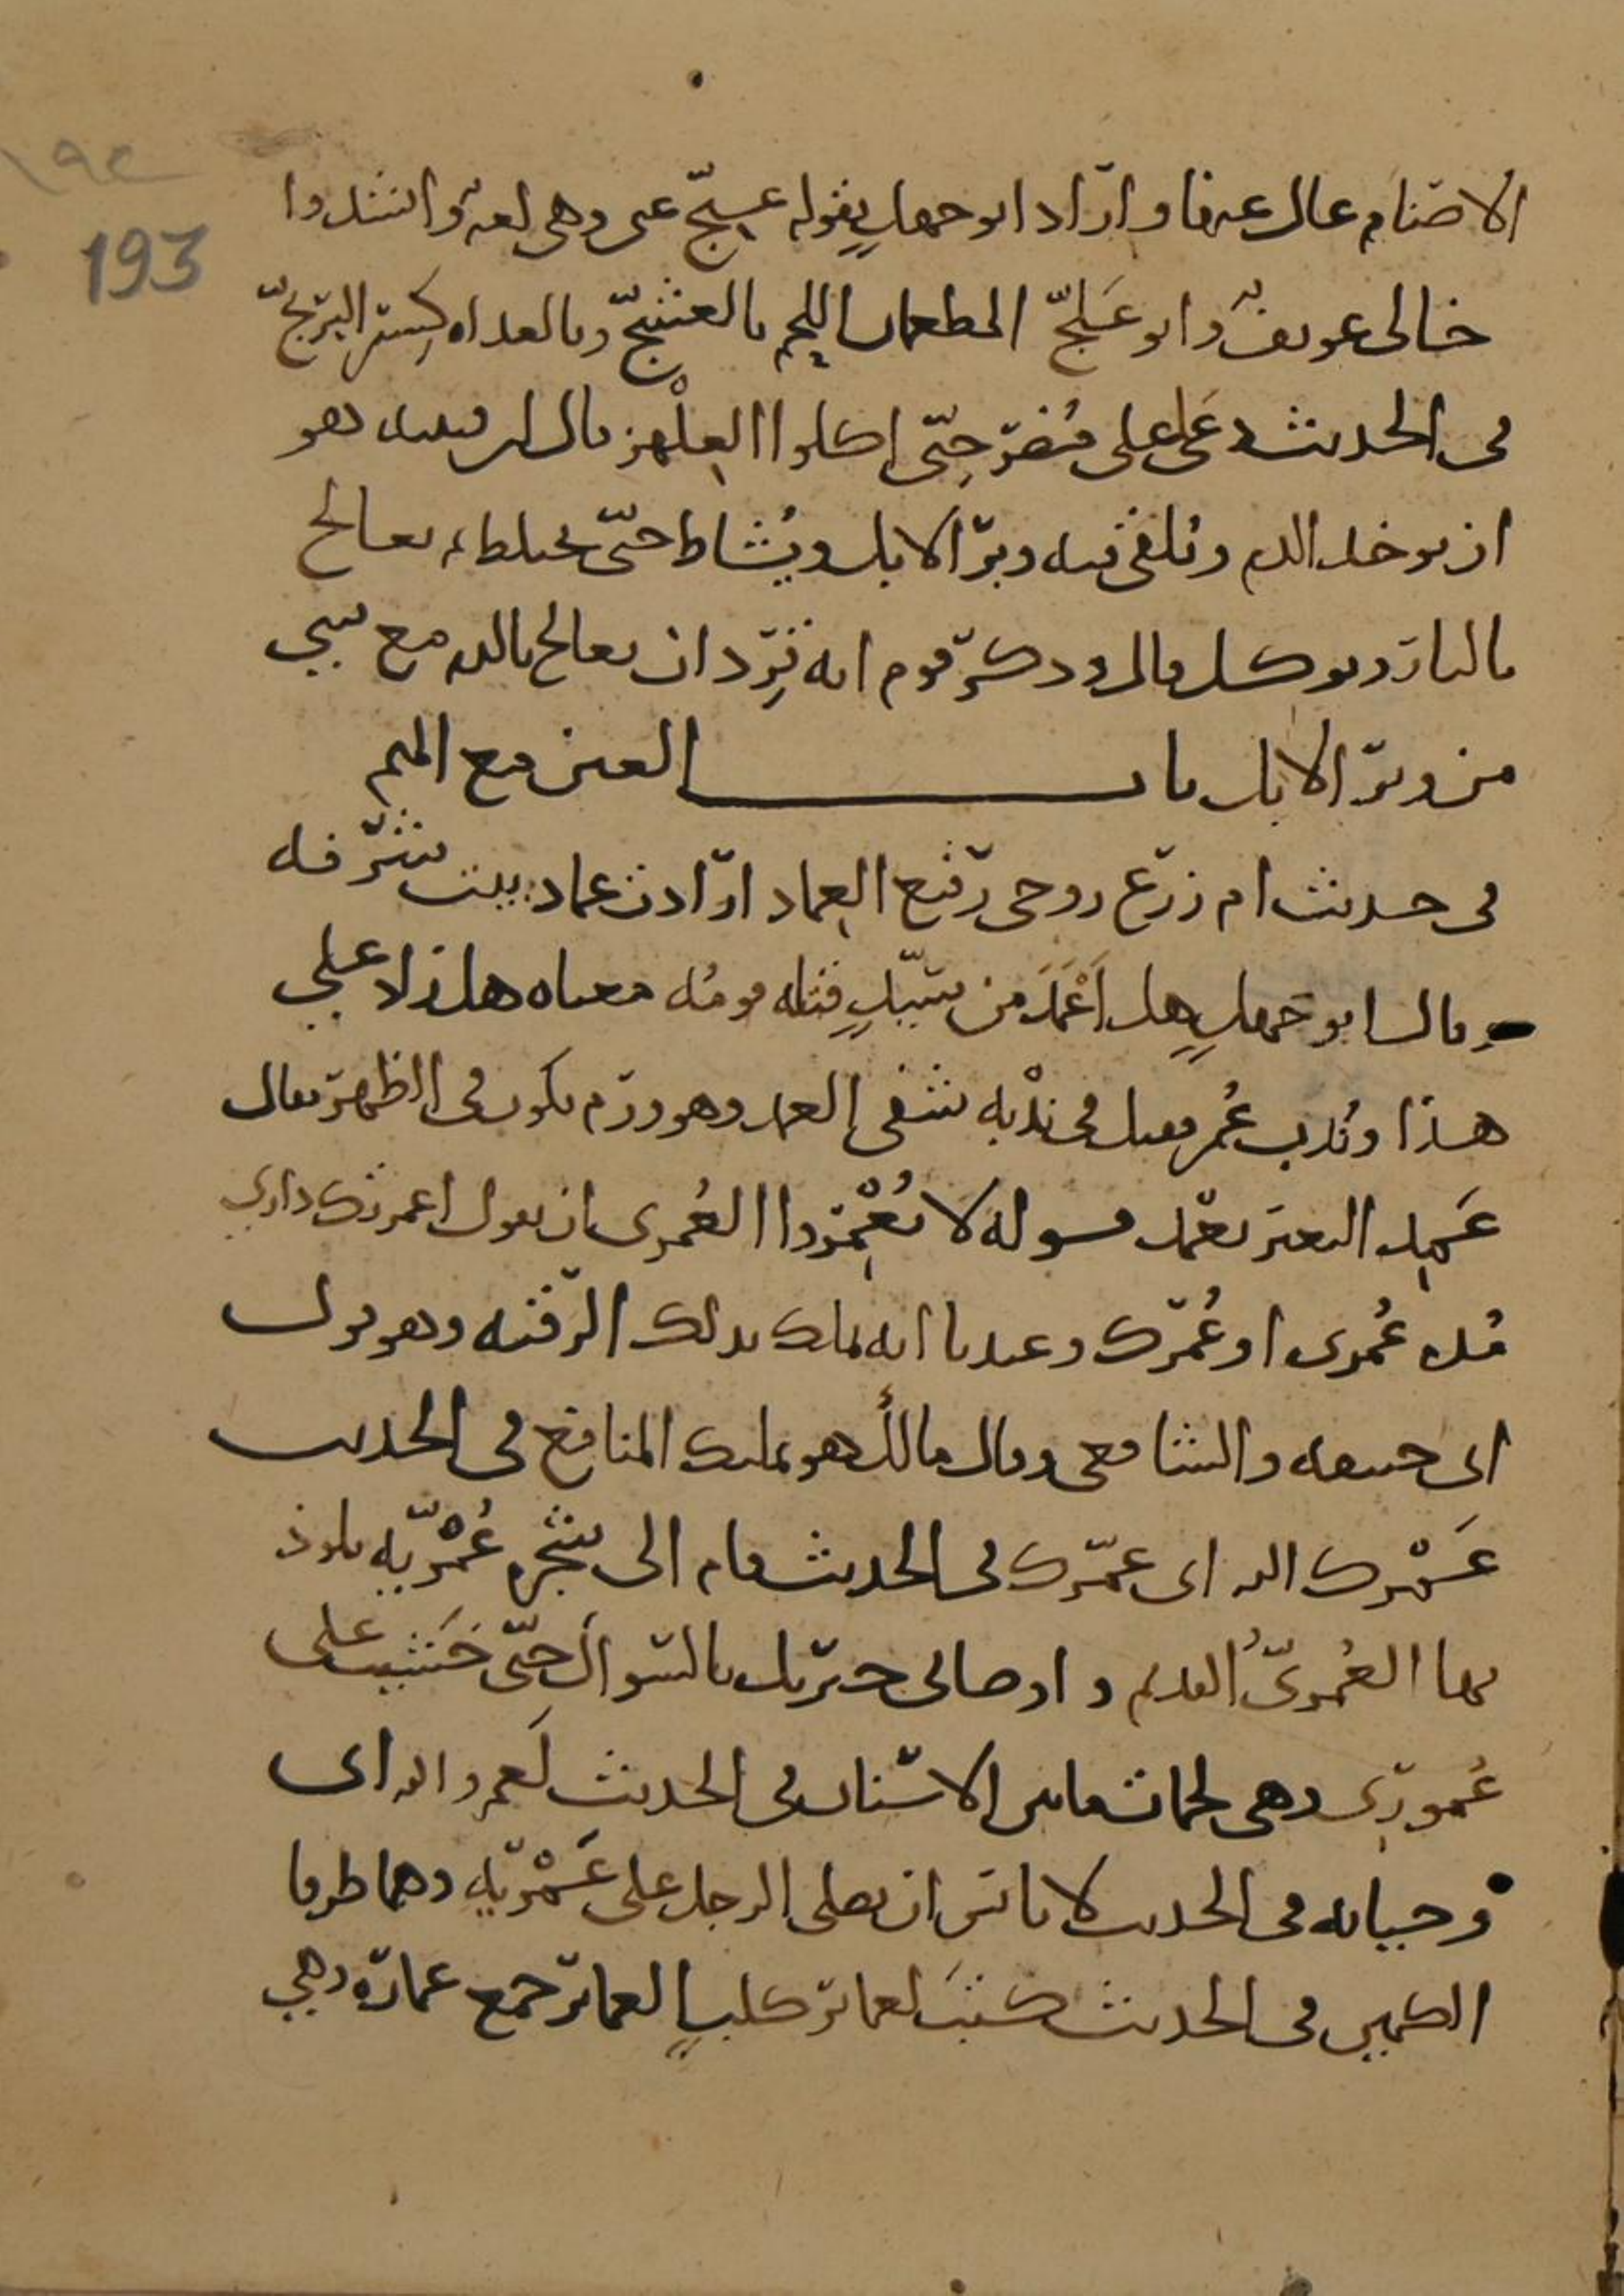 ١٩٢
193
الاصنام عال عنها واراد ابو جهل بقوله عنج عنى وهى لغة وانشدوا
خالى عويف وابو علج المطعمان اللحم بالعشج وبالغداه كسر البرنج
فى الحديث دعى على مضر حتى اكلوا العلهز قال ابن قتيبه هو
ان يوخذ الدم ويلقى فيه وبر الابل ويشاط حتى يختلط ثم يعالج
بالنار ويوكل قال وذكر قوم انه قرد ان يعالج بالدم مع شى
من وبر الابل باب العين مع الميم
فى حديث ام زرع زوجى رفيع العماد ارادت عماد بيت شرفه
وقال ابو جهل هل اعمد من سيد قتله قومه معناه هل زاد على
هذا وندب عمر فقيل فى ندبه شفى العمد وهو ورم يكون فى الظهر يقال
عمد البعير يعمد قوله لا تعمروا العمرى ان يقول اعمرتك دارى
هذه عمرى او عمرك وعندنا انه يملك بذلك الرقبه وهو قول
ابى حنيفه والشافعى وقال مالك هو يملك المنافع فى الحديث
عمرك الله اى عمرك فى الحديث قام الى شجره عمريه يلوذ
بها العمرى القديم واوصانى جبريل بالسواك حتى خشيت على
عمورى وهى لحمات مابين الاسنان فى الحديث لعمرو الله اى
وحياته فى الحديث لا باس ان يصلى الرجل على عمريه وهما طرفا
الكمين فى الحديث كتب لعماير كلب العماير جمع عماره وهى